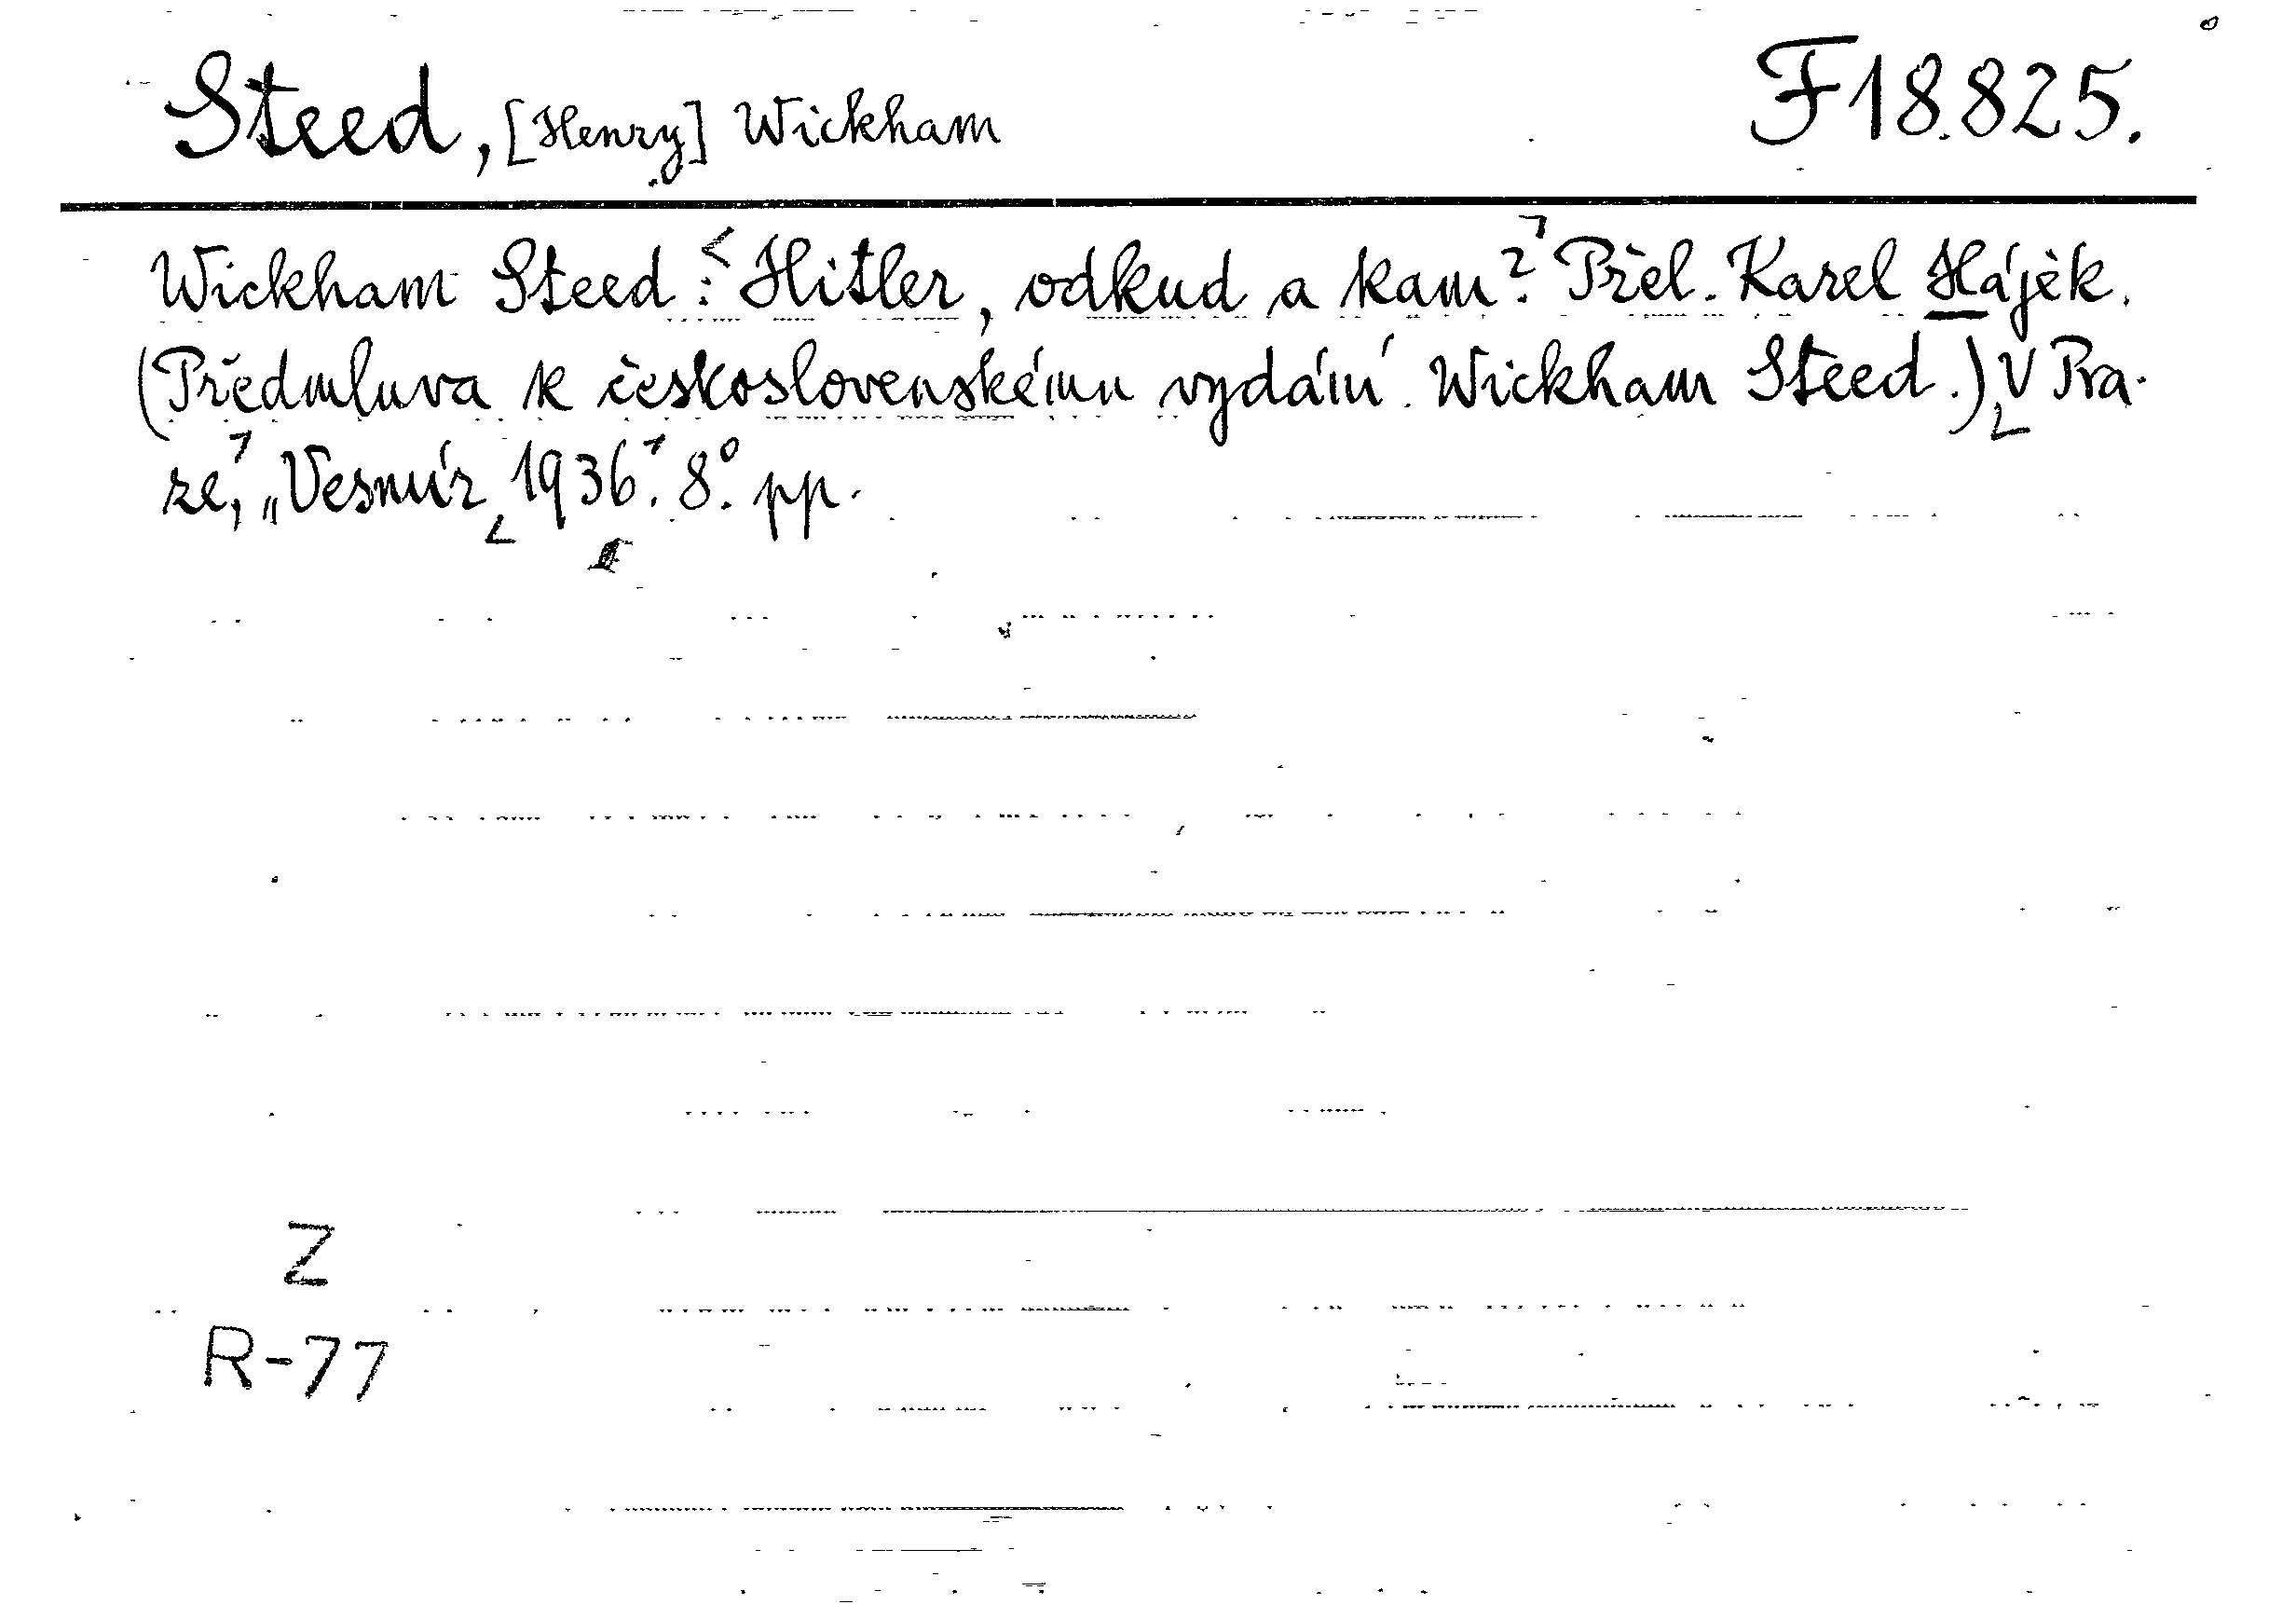 Steed, [Henry] Wickham F 18.825.
Wickham Steed: Hitler, odkud a kam? Přel. Karel Hájek.
(Předmluva k československému vydání Wickham Steed.) V Pra-
ze, „Vesmír 1936. 8° pp.
Z
R-77